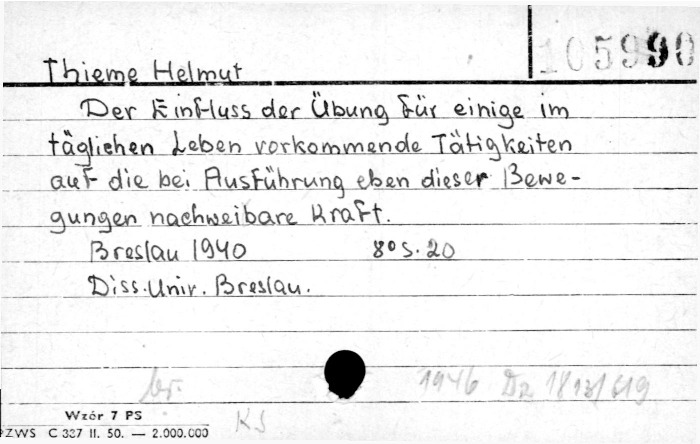 105990
Thieme Helmut
Der Einfluss der Übung für einige im
täglichen Leben vorkommende Tätigkeiten
auf die bei Ausführung eben dieser Bewe-
gungen nachweibare Kraft.
Breslau 1940 8° S. 20
Diss. Univ. Breslau.
br. 1946 Dz 1813/619
Wzór 7 PS KS
PZWS C 327 II. 50. — 2.000.000